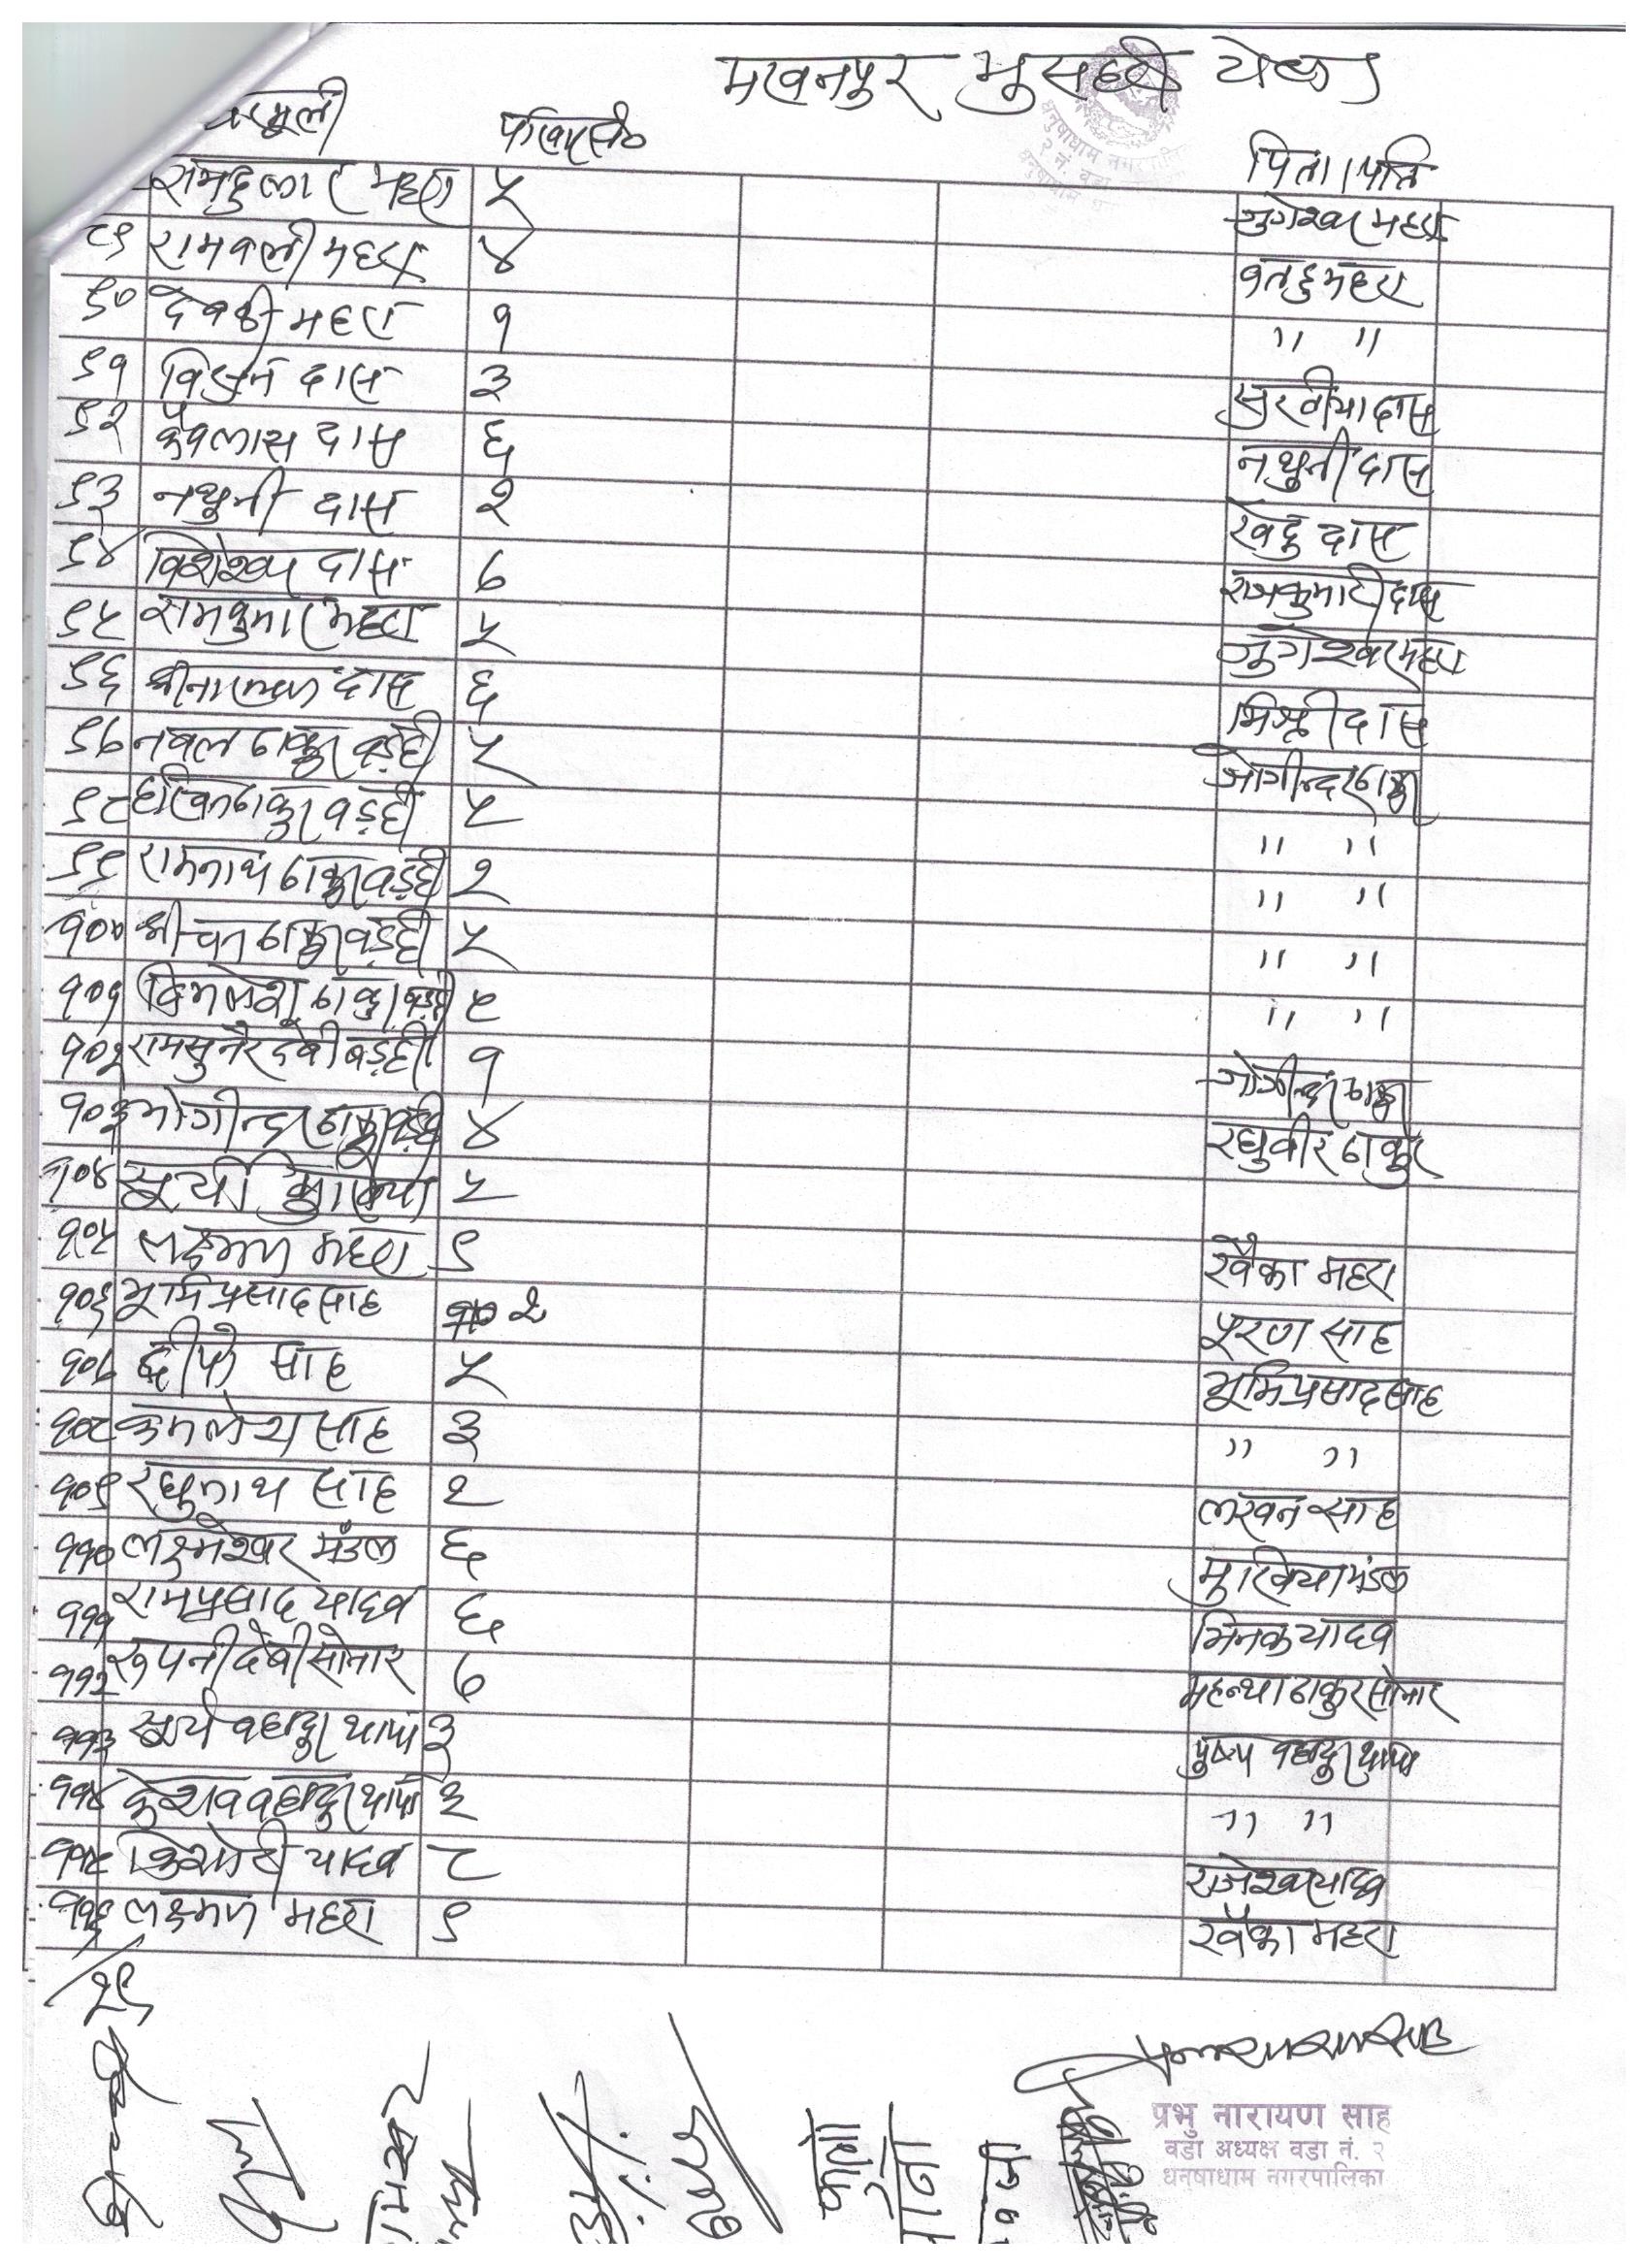 मखनपुर मुसहरी टोल
घरमुली परिवार सं० पिता/पति
रामदुलार महरा ५ जुगेश्वर महरा
८९ रामवली महरा ४ वतहु महरा
९० देवकी महरा १ " "
९१ विसुन दास ३ सुरतीया दास
९२ कैलास दास ६ नथुनी दास
९३ नथुनी दास २ खेदु दास
९४ विशेश्वर दास ७ राजकुमार दास
९५ रामकुमार महरा ५ जुगेश्वर महरा
९६ श्रीनारायण दास ६ मिश्री दास
९७ नवल ठाकुर बड़ही ५ जोगीन्दर ठाकुर
९८ ठाकुर बड़ही ५ " "
९९ रामनाथ ठाकुर बड़ही २ " "
१०० श्रीचन ठाकुर बड़ही ५ " "
१०१ विमलेश ठाकुर बड़ही ५ " "
१०२ रामसुनैर देवी बड़ही १ जोगीन्दर ठाकुर
१०३ जोगीन्दर ठाकुर बड़ही ४ रघुवीर ठाकुर
१०४ सूर्या मुखिया ५
१०५ लक्ष्मण महरा ९ खैका महरा
१०६ भूमि प्रसाद साह २ पूरण साह
१०७ साह ५ भूमि प्रसाद साह
१०८ कमलेश साह ३ " "
१०९ रघुनाथ साह २ लखन साह
११० लक्ष्मेश्वर मंडल ६ मुखिया मंडल
१११ रामप्रसाद यादव ६ भिनक यादव
११२ रुपनी देवी सोनार ७ महन्था ठाकुर सोनार
११३ सूर्य वहादुर थापा ३ पुष्प वहादुर थापा
११४ केशव वहादुर थापा ३ " "
११५ किशोरी यादव ८ राजेश्वर यादव
११६ लक्ष्मण महरा ९ खैका महरा
२९
प्रभु नारायण साह
वडा अध्यक्ष वडा नं. २
धनुषाधाम नगरपालिका